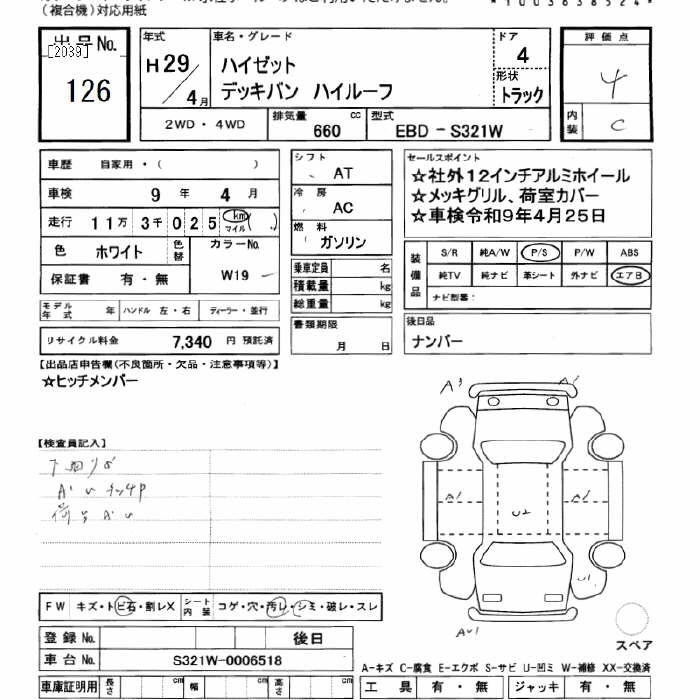 (複合機)対応用紙
*1003638524*
出品No.
[2039]
126
年式
H29/4月
車名・グレード
ハイゼット
デッキバン ハイルーフ
ドア
4
形状
トラック
2WD・4WD
排気量
660 cc
型式
EBD-S321W
評価点
4
内装
C
車歴 自家用・( )
車検 9年 4月
走行 11万 3千 025 km マイル ( )
色 ホワイト
色替
カラーNo.
W19
保証書 有・無
シフト
AT
冷房
AC
燃料
ガソリン
乗車定員 名
積載量 kg
総重量 kg
セールスポイント
☆社外12インチアルミホイール
☆メッキグリル、荷室カバー
☆車検令和9年4月25日
装備品
S/R 純A/W P/S P/W ABS
純TV 純ナビ 革シート 外ナビ エアB
ナビ型番:
モデル年式 年 ハンドル 左・右 ディーラー・並行
リサイクル料金 7,340 円 預託済
書類期限
月 日
後日品
ナンバー
【出品店申告欄(不良箇所・欠品・注意事項等)】
☆ヒッチメンバー
【検査員記入】
A'
A1
A1
U2
U1
FW キズ・トビ石・割レX
シート内装 コゲ・穴・汚レ・シミ・破レ・スレ
登録No. 後日
車台No. S321W-0006518
車庫証明用 長さ cm 幅 cm 高さ cm
スペア
A-キズ C-腐食 E-エクボ S-サビ U-凹ミ W-補修 XX-交換済
工具 有・無 ジャッキ 有・無